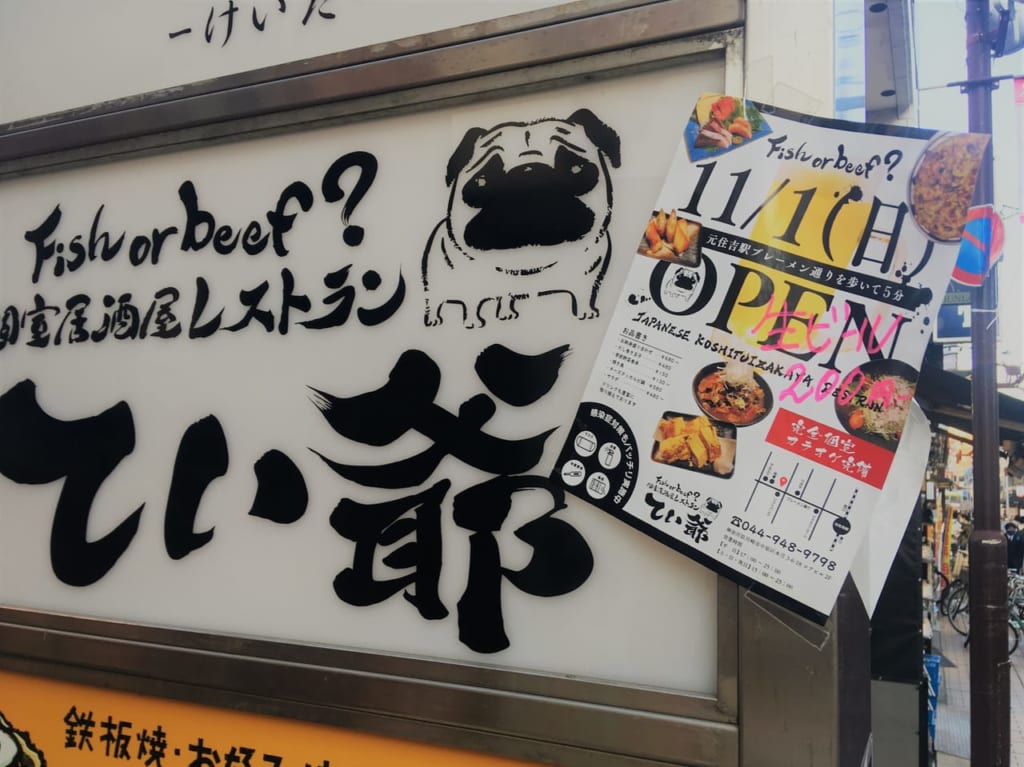 ーけいた
Fish or beef?
個室居酒屋レストラン
てい爺
鉄板焼・お好み
Fish or beef?
11/1(日)
元住吉駅ブレーメン通りを歩いて5分
OPEN
生ビール
200円〜
JAPANESE KOSHITUIZAKAYA RESTRAN
お品書き
感染症対策もバッチリ実施中
完全個室
カラオケ完備
Fish or beef?
個室居酒屋レストラン
てい爺
☎044-948-9798
営業時間